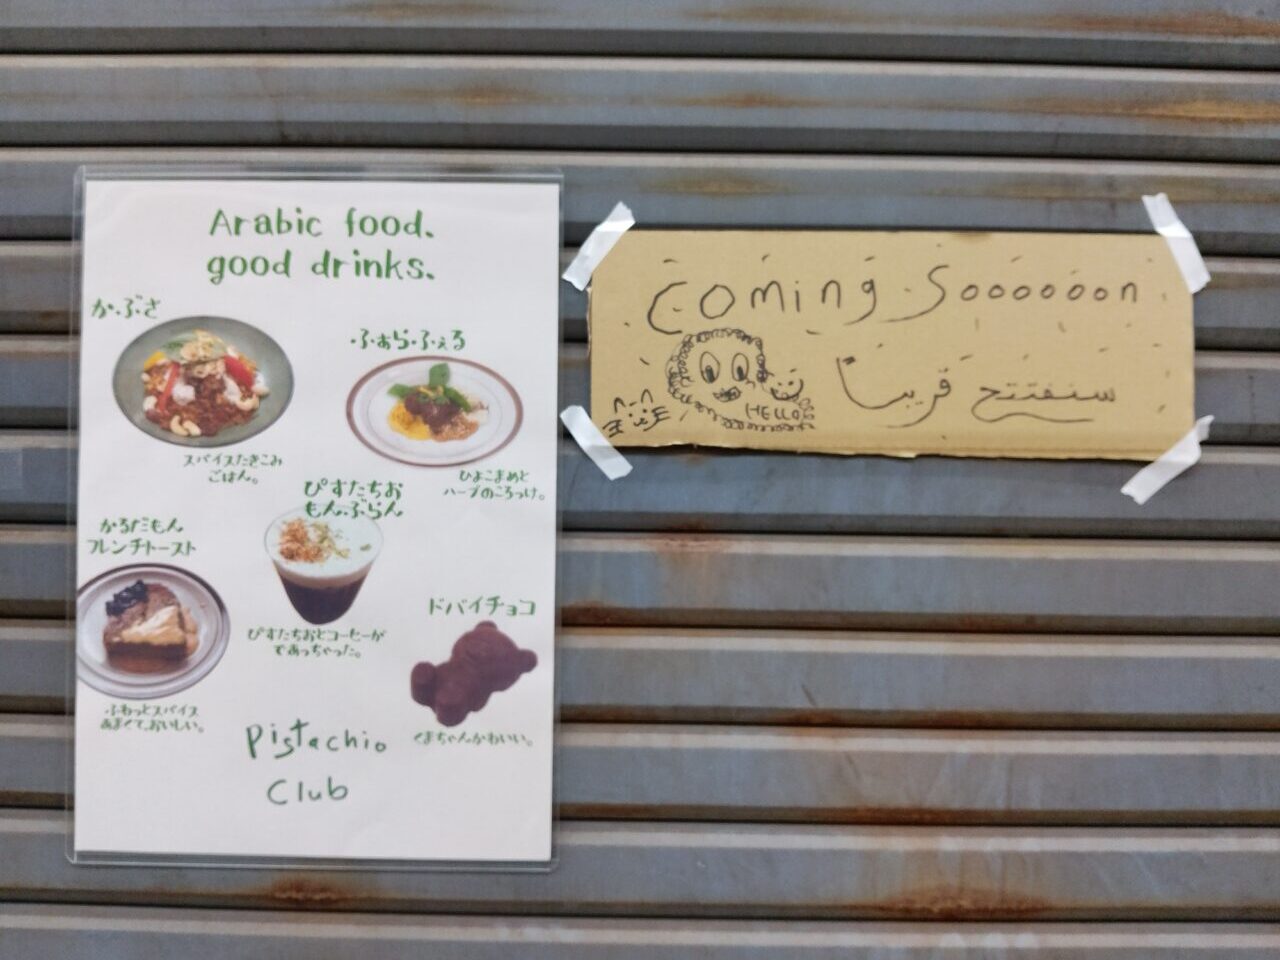 Arabic food.
good drinks.
かぶさ
スパイスたきこみ
ごはん。
ふぁらふぇる
ひよこまめと
ハーブのころっけ。
ぴすたちお
もんぶらん
ぴすたちおとコーヒーが
であっちゃった。
かるだもん
フレンチトースト
ふわっとスパイス
あまくて、おいしい。
ドバイチョコ
くまちゃんかわいい。
Pistachio
Club
Coming Soooooon
سنفتتح قريباً
HELLO